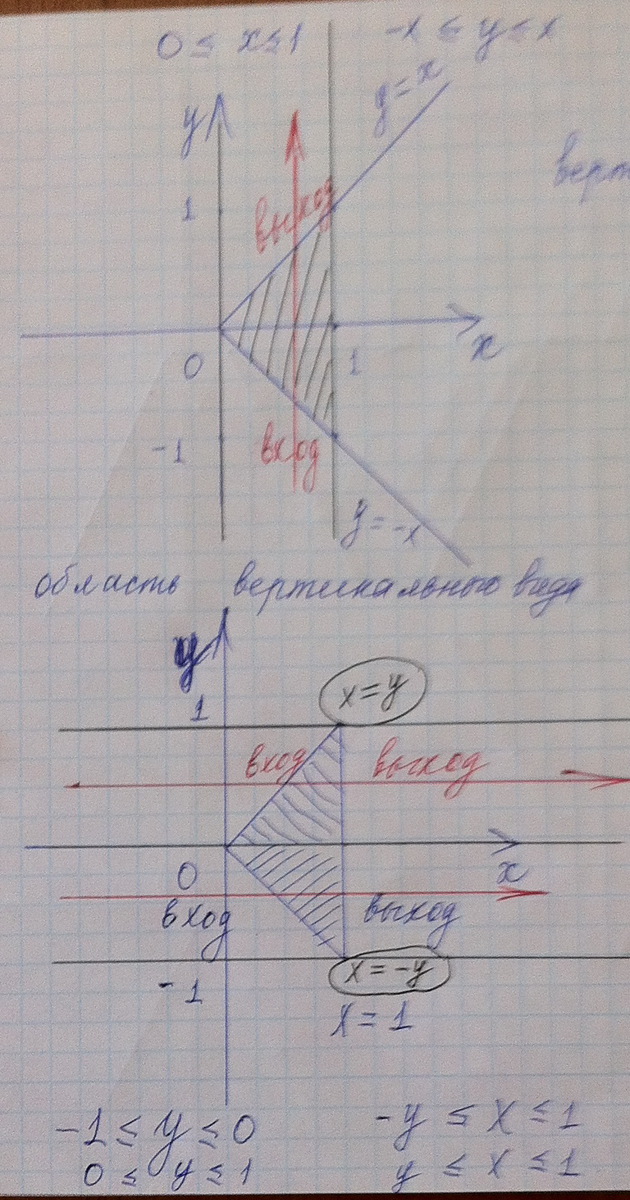 0 ≤ x ≤ 1 -x ≤ y ≤ x
y = x
y
1
выход
0
1
x
-1
вход
y = -x
область вертикального вида
y
1
x = y
вход выход
0
x
вход выход
-1
x = -y
x = 1
-1 ≤ y ≤ 0 -y ≤ x ≤ 1
0 ≤ y ≤ 1 y ≤ x ≤ 1